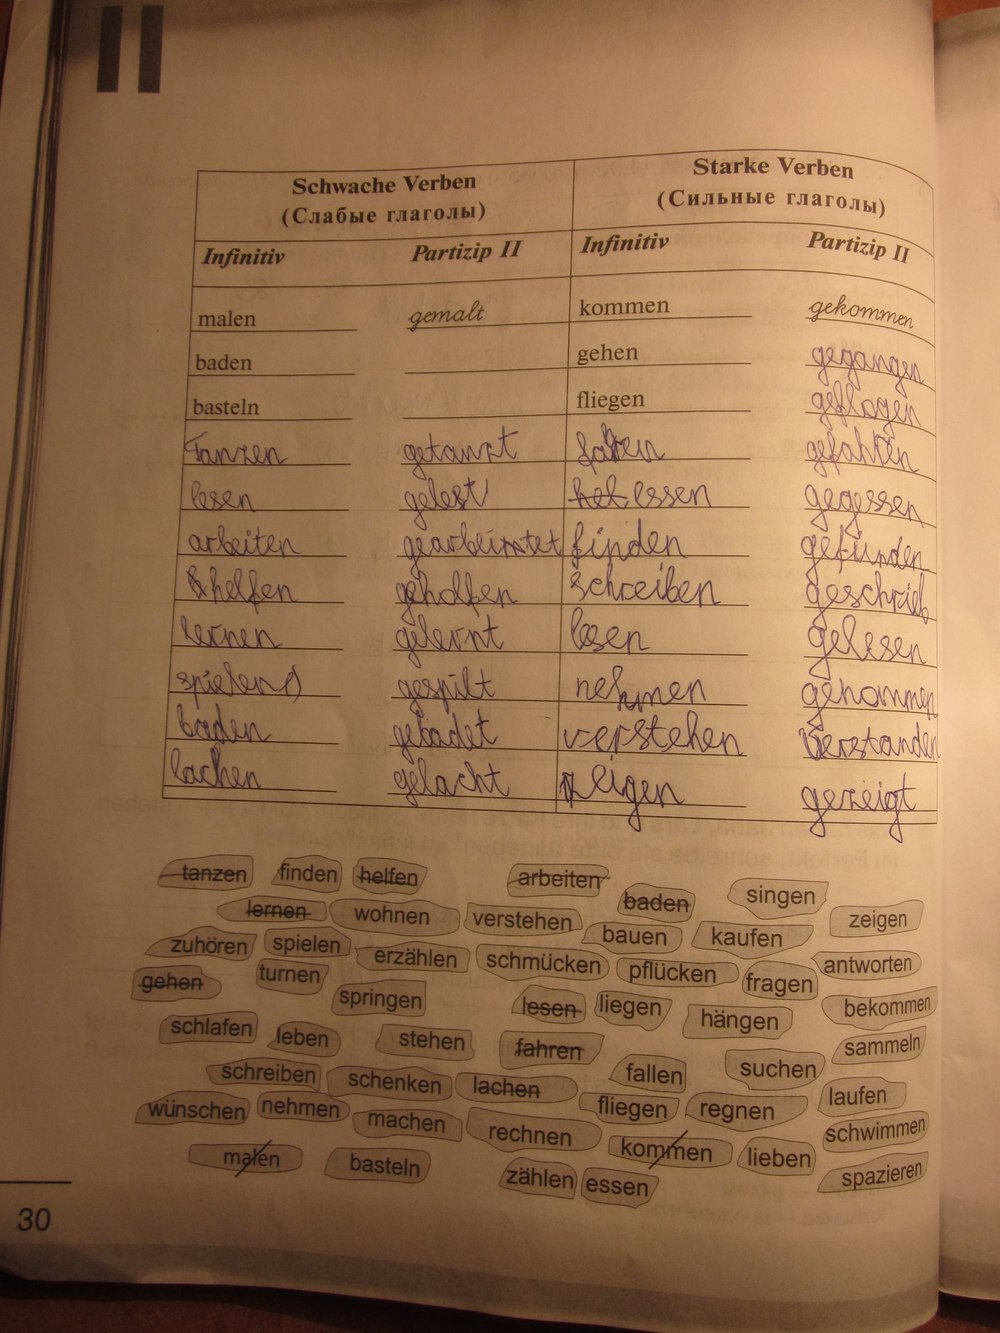 II
Schwache Verben Starke Verben
(Слабые глаголы) (Сильные глаголы)
Infinitiv Partizip II Infinitiv Partizip II
malen gemalt kommen gekommen
baden gehen gegangen
basteln fliegen geflogen
Tanzen getanzt fahren gefahren
lesen gelest essen gegessen
arbeiten finden gefunden
helfen geholfen schreiben geschrieb
lernen gelernt lesen gelesen
spielen gespilt nehmen genommen
baden gebadet verstehen verstanden
lachen gelacht zeigen gezeigt
tanzen finden helfen arbeiten baden singen
lernen wohnen verstehen bauen kaufen zeigen
zuhören spielen erzählen schmücken pflücken fragen antworten
gehen turnen springen lesen liegen hängen bekommen
schlafen leben stehen fahren fallen suchen sammeln
schreiben schenken lachen fliegen regnen laufen
wünschen nehmen machen rechnen kommen lieben schwimmen
malen basteln zählen essen spazieren
30